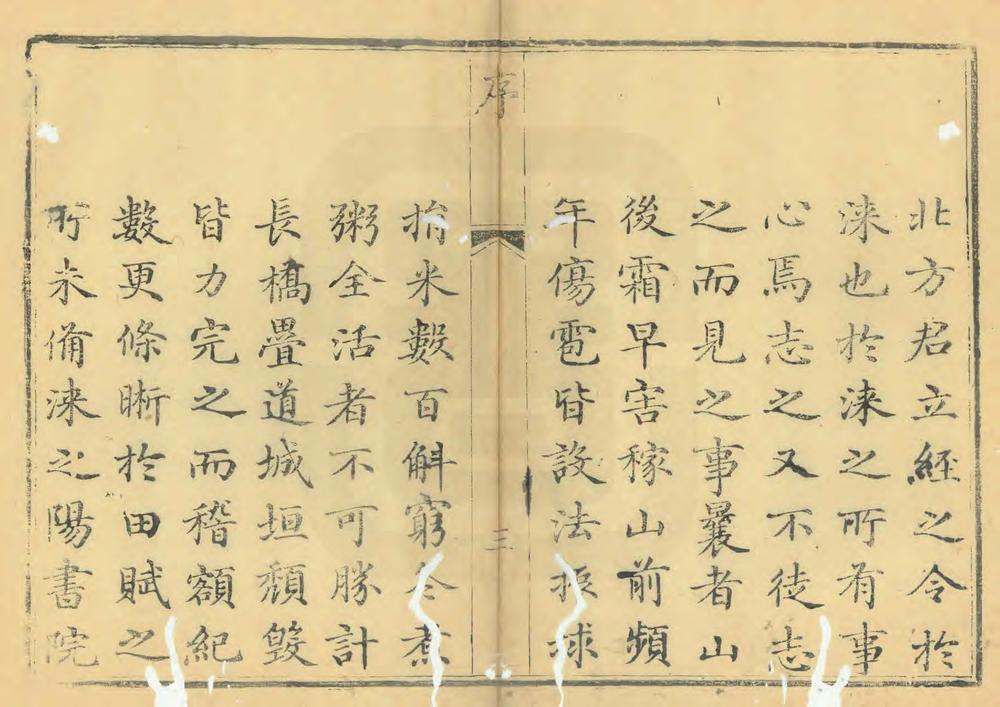 北方君立經之令於
淶也於淶之所有事
心焉志之又不徒志
之而見之事曩者山
後霜早害稼山前頻
年傷雹皆設法振捄
序
三
捐米數百斛窮冬煮
粥全活者不可勝計
長橋疊道城垣頹毀
皆力完之而稽額紀
數更條晰於田賦之
所未備淶之陽書院